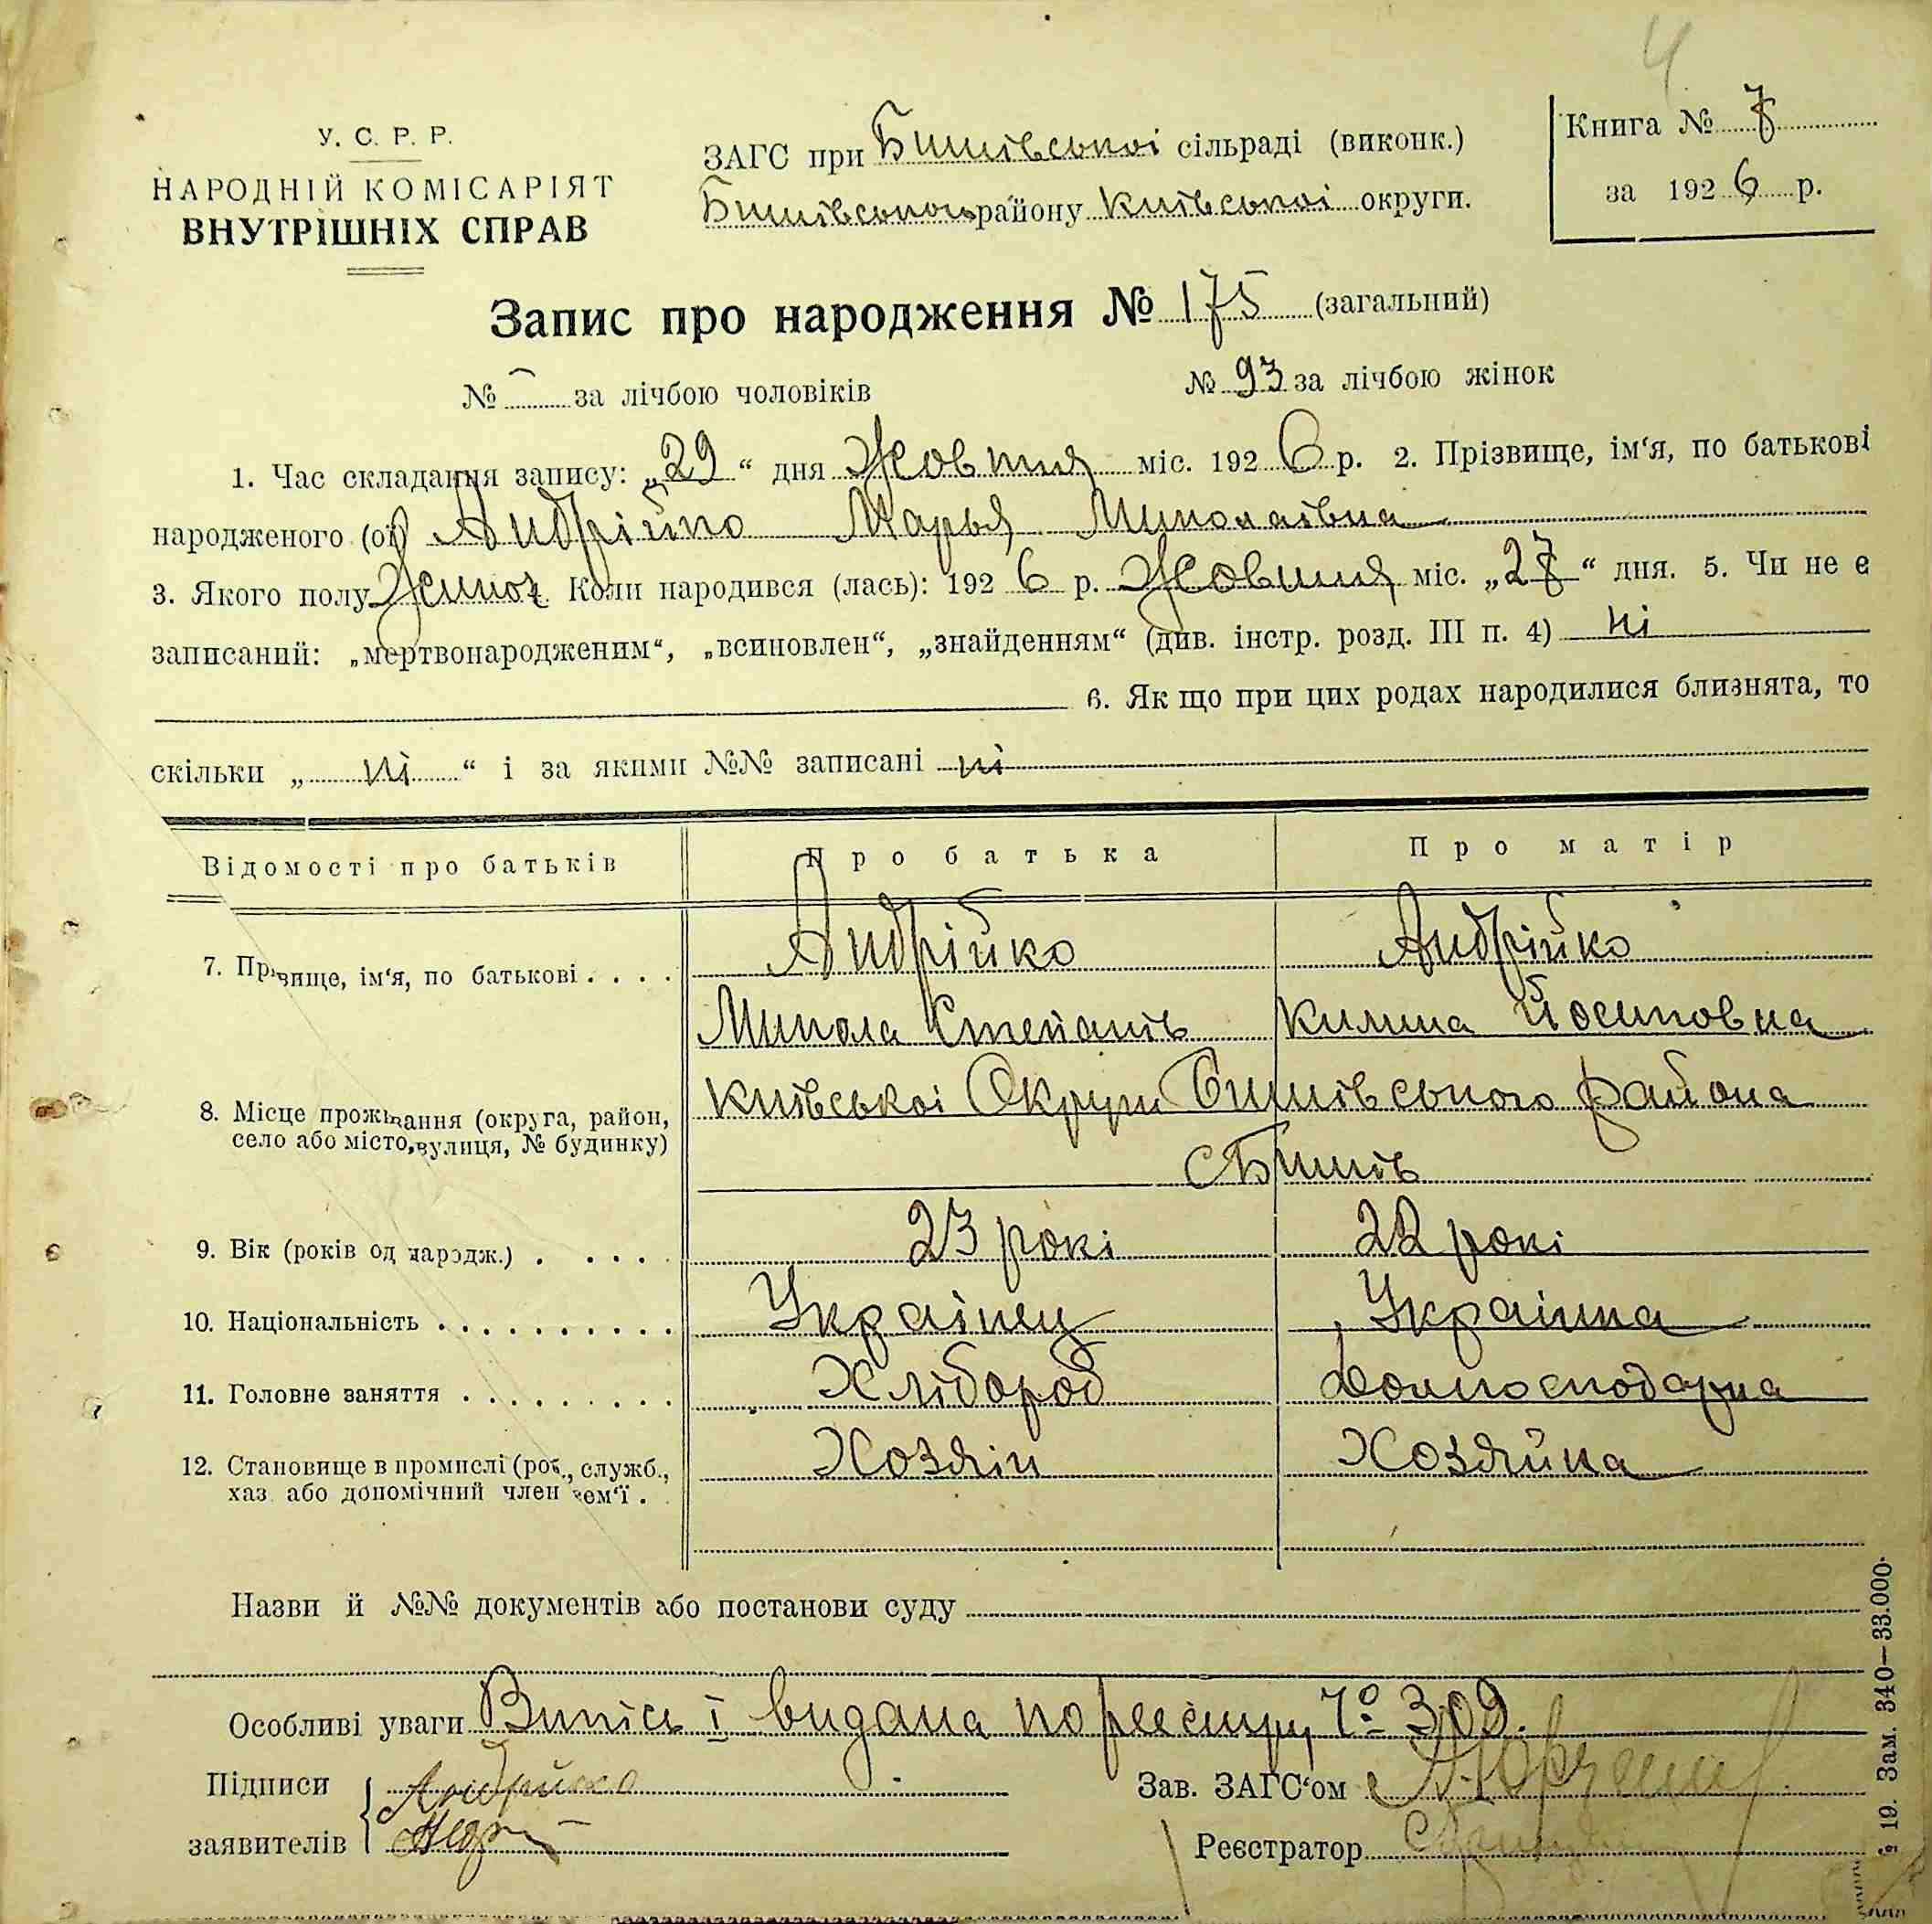 4
У. С. Р. Р.
НАРОДНІЙ КОМІСАРІЯТ
ВНУТРІШНІХ СПРАВ
ЗАГС при Бишівської сільраді (виконк.)
Бишівського району Київської округи.
Книга № 7
за 1926 р.
Запис про народження № 175 (загальний)
№ — за лічбою чоловіків № 93 за лічбою жінок
1. Час складання запису: „29“ дня Жовтня міс. 1926 р. 2. Прізвище, ім‘я, по батькові
народженого (ої) Андрійко Марья Миколаівна
3. Якого полу Жіноч. Коли народився (лась): 1926 р. Жовтня міс. „27“ дня. 5. Чи не є
записаний: „мертвонародженим“, „всиновлен“, „знайденням“ (див. інстр. розд. III п. 4) ні
6. Як що при цих родах народилися близнята, то
скільки „ ні “ і за якими №№ записані ні
Відомості про батьків Про батька Про матір
7. Прізвище, ім‘я, по батькові . . . . Андрійко Андрійко
Микола Степанів Килина Йосиповна
8. Місце проживання (округа, район, Київської Округи Бишівського района
село або місто, вулиця, № будинку) с Бишів
9. Вік (років од народж.) . . . . 23 рокі 22 рокі
10. Національність . . . . . . . . . . Українец Українка
11. Головне заняття . . . . . . . . . Хлібороб Домгосподарка
12. Становище в промислі (роб., служб., Хозяін Хозяйка
хаз або допомічний член сем‘ї . .
Назви й №№ документів або постанови суду
Особливі уваги Випісь і видана по реєстру № 309.
Підписи Андрійко Зав. ЗАГС‘ом
заявителів Реєстратор
19. Зам. 340—33.000.